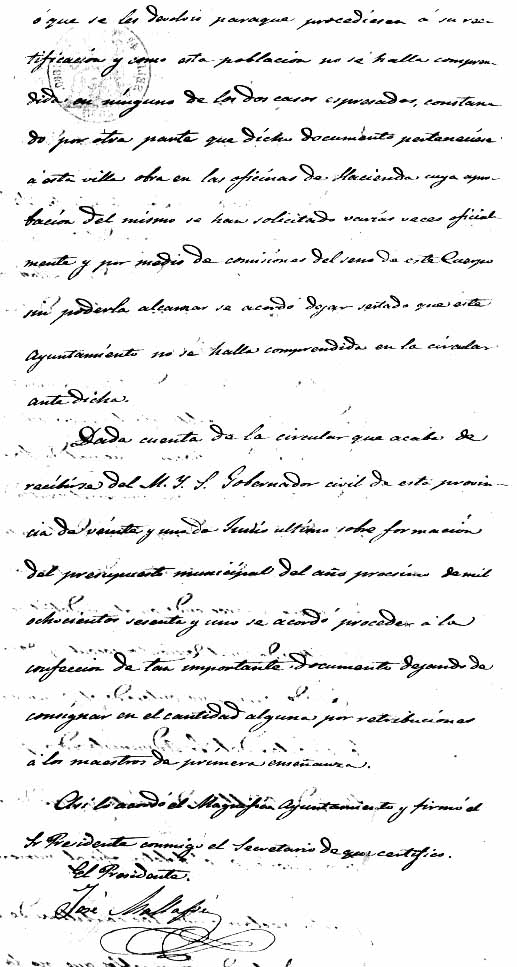 ó que se les devolvio paraque procediesen á su rec-
tificación y como esta poblacion no se halla compren-
dida en ninguno de los dos casos espresados, constan-
do por otra parte que dicho documento perteneciente
á esta villa obra en las oficinas de Hacienda cuya apro-
bación del mismo se han solicitado varias veces oficial-
mente y por medio de comisiones del seno de este Cuerpo
sin poderla alcanzar se acordó dejar sentado que este
Ayuntamiento no se halla comprendido en la circular
ante dicha.
Dada cuenta de la circular que acaba de
recibirse del M. Y. S. Gobernador civil de esta provin-
cia de veinte y uno de Junio ultimo sobre formación
del presupuesto municipal del año procsimo de mil
ochocientos sesenta y uno se acordó proceder á la
confeccion de tan importante documento dejando de
consignar en el cantidad alguna por retribuciones
á los maestros de primera enseñanza.
Asi lo acordó el Magnifico Ayuntamiento y firmó el
Sr Presidente conmigo el Secretario de que certifico.
El Presidente.
José